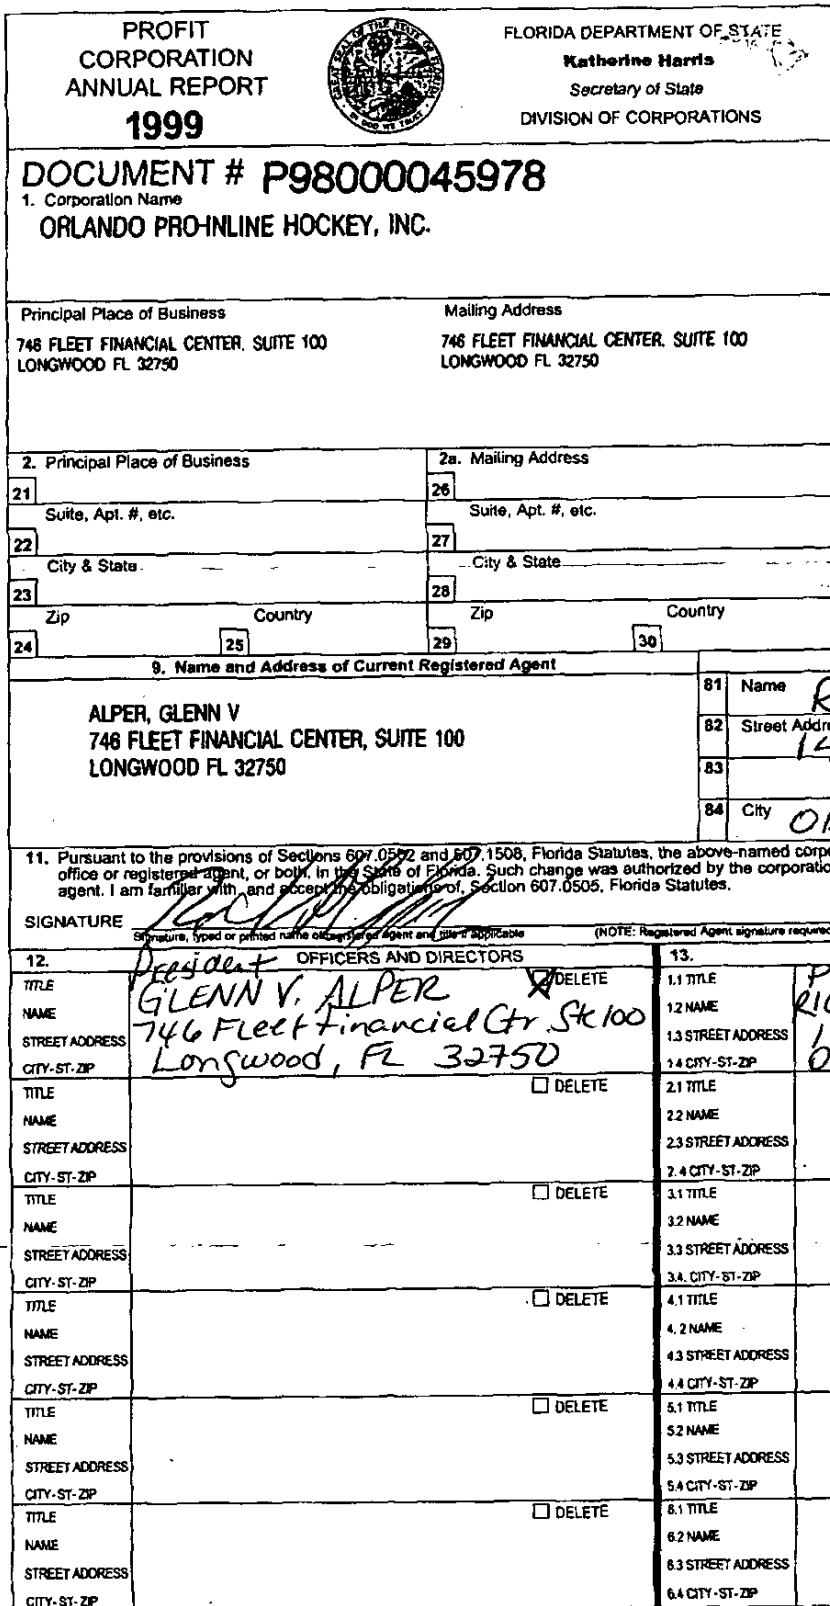 PROFIT
CORPORATION
ANNUAL REPORT
1999
GREAT SEAL OF THE STATE OF FLORIDA
IN GOD WE TRUST
FLORIDA DEPARTMENT OF STATE
Katherine Harris
Secretary of State
DIVISION OF CORPORATIONS
DOCUMENT # P98000045978
1. Corporation Name
ORLANDO PRO-INLINE HOCKEY, INC.
Principal Place of Business
746 FLEET FINANCIAL CENTER, SUITE 100
LONGWOOD FL 32750
Mailing Address
746 FLEET FINANCIAL CENTER, SUITE 100
LONGWOOD FL 32750
2. Principal Place of Business
21
Suite, Apt. #, etc.
22
City & State
23
Zip
Country
24
25
2a. Mailing Address
26
Suite, Apt. #, etc.
27
City & State
28
Zip
Country
29
30
9. Name and Address of Current Registered Agent
ALPER, GLENN V
746 FLEET FINANCIAL CENTER, SUITE 100
LONGWOOD FL 32750
81 Name
82 Street Addre
83
84 City
11. Pursuant to the provisions of Sections 607.0502 and 607.1508, Florida Statutes, the above-named corpo
office or registered agent, or both, in the State of Florida. Such change was authorized by the corporatio
agent. I am familiar with, and accept the obligations of, Section 607.0505, Florida Statutes.
SIGNATURE
Signature, typed or printed name of registered agent and title if applicable
(NOTE: Registered Agent signature required
12. OFFICERS AND DIRECTORS
TITLE President DELETE
NAME GLENN V. ALPER
STREET ADDRESS 746 Fleet Financial Ctr. Ste 100
CITY-ST-ZIP Longwood, FL 32750
TITLE DELETE
NAME
STREET ADDRESS
CITY-ST-ZIP
TITLE DELETE
NAME
STREET ADDRESS
CITY-ST-ZIP
TITLE DELETE
NAME
STREET ADDRESS
CITY-ST-ZIP
TITLE DELETE
NAME
STREET ADDRESS
CITY-ST-ZIP
TITLE DELETE
NAME
STREET ADDRESS
CITY-ST-ZIP
13.
1.1 TITLE P
1.2 NAME
1.3 STREET ADDRESS
1.4 CITY-ST-ZIP
2.1 TITLE
2.2 NAME
2.3 STREET ADDRESS
2.4 CITY-ST-ZIP
3.1 TITLE
3.2 NAME
3.3 STREET ADDRESS
3.4. CITY-ST-ZIP
4.1 TITLE
4.2 NAME
4.3 STREET ADDRESS
4.4 CITY-ST-ZIP
5.1 TITLE
5.2 NAME
5.3 STREET ADDRESS
5.4 CITY-ST-ZIP
6.1 TITLE
6.2 NAME
6.3 STREET ADDRESS
6.4 CITY-ST-ZIP